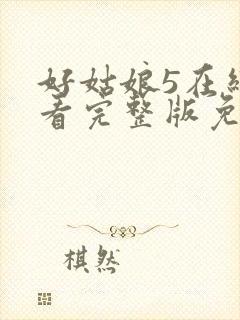 好姑娘5在
看完整版免
棋然